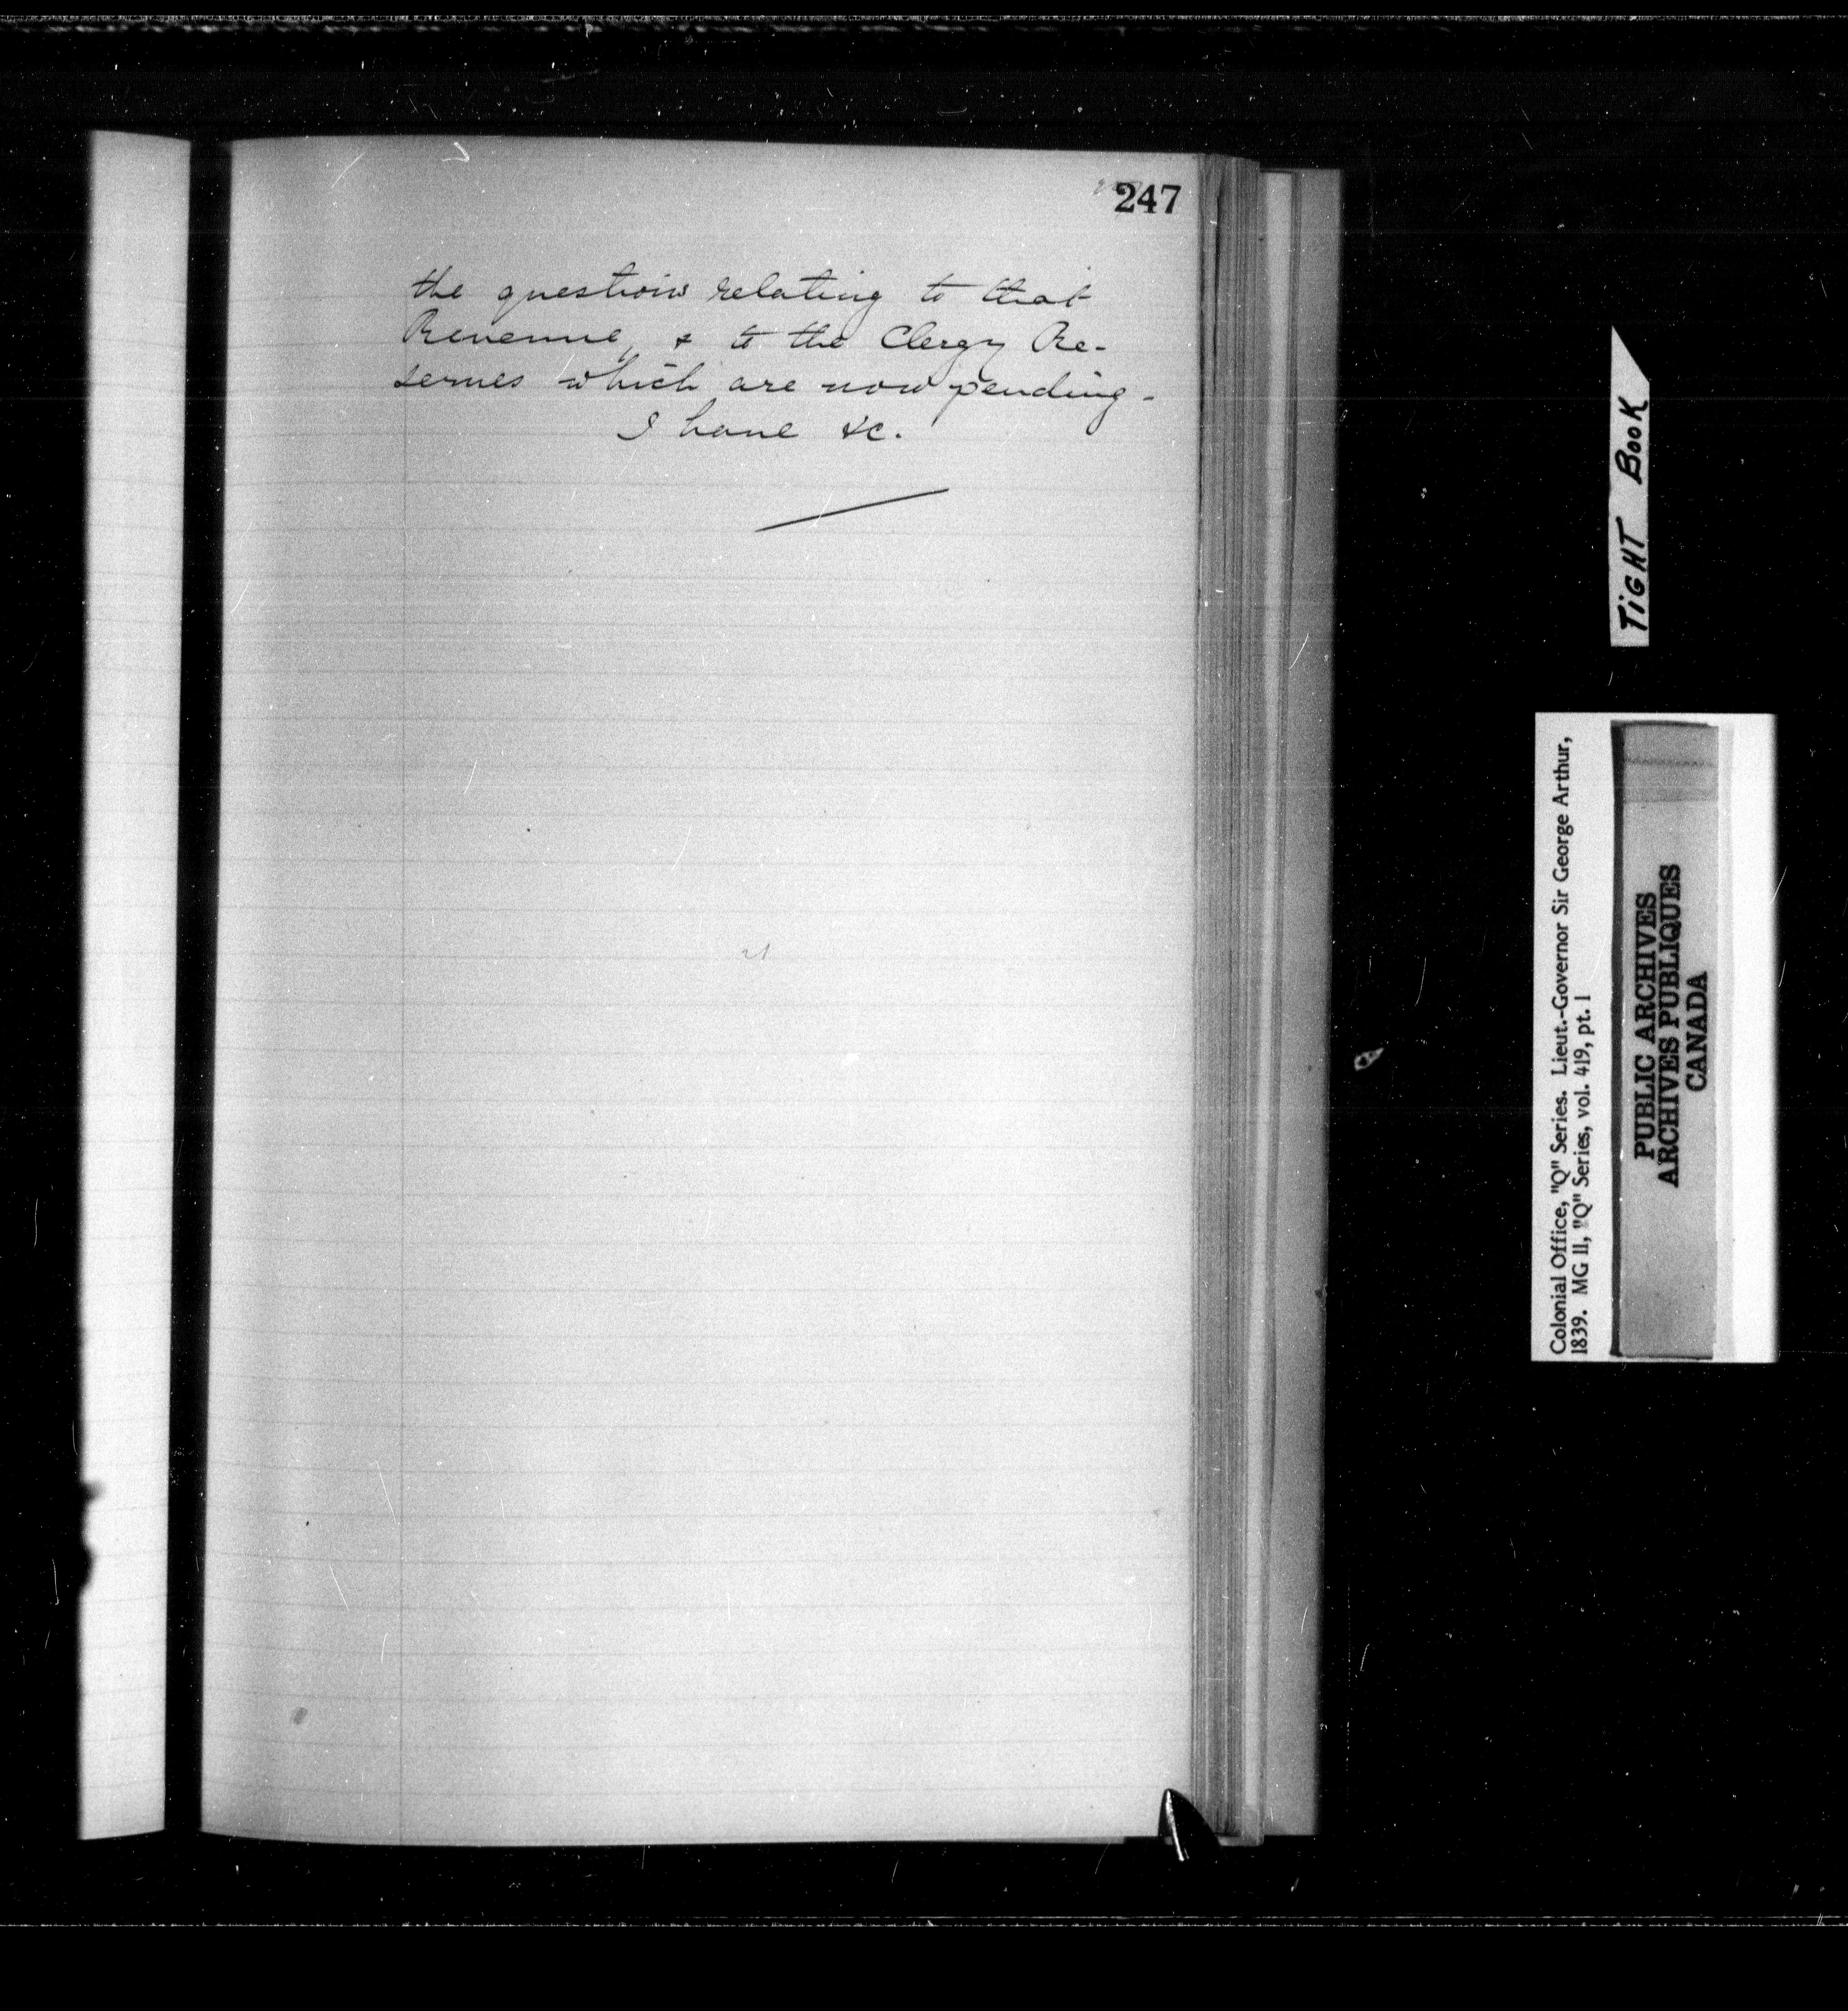 247
the questions relating to that
Revenue, & to the Clergy Re-
serves which are now pending -
I have &c.
TIGHT BOOK
Colonial Office, "Q" Series. Lieut.-Governor Sir George Arthur,
1839. MG 11, "Q" Series, vol. 419, pt. 1
PUBLIC ARCHIVES
ARCHIVES PUBLIQUES
CANADA